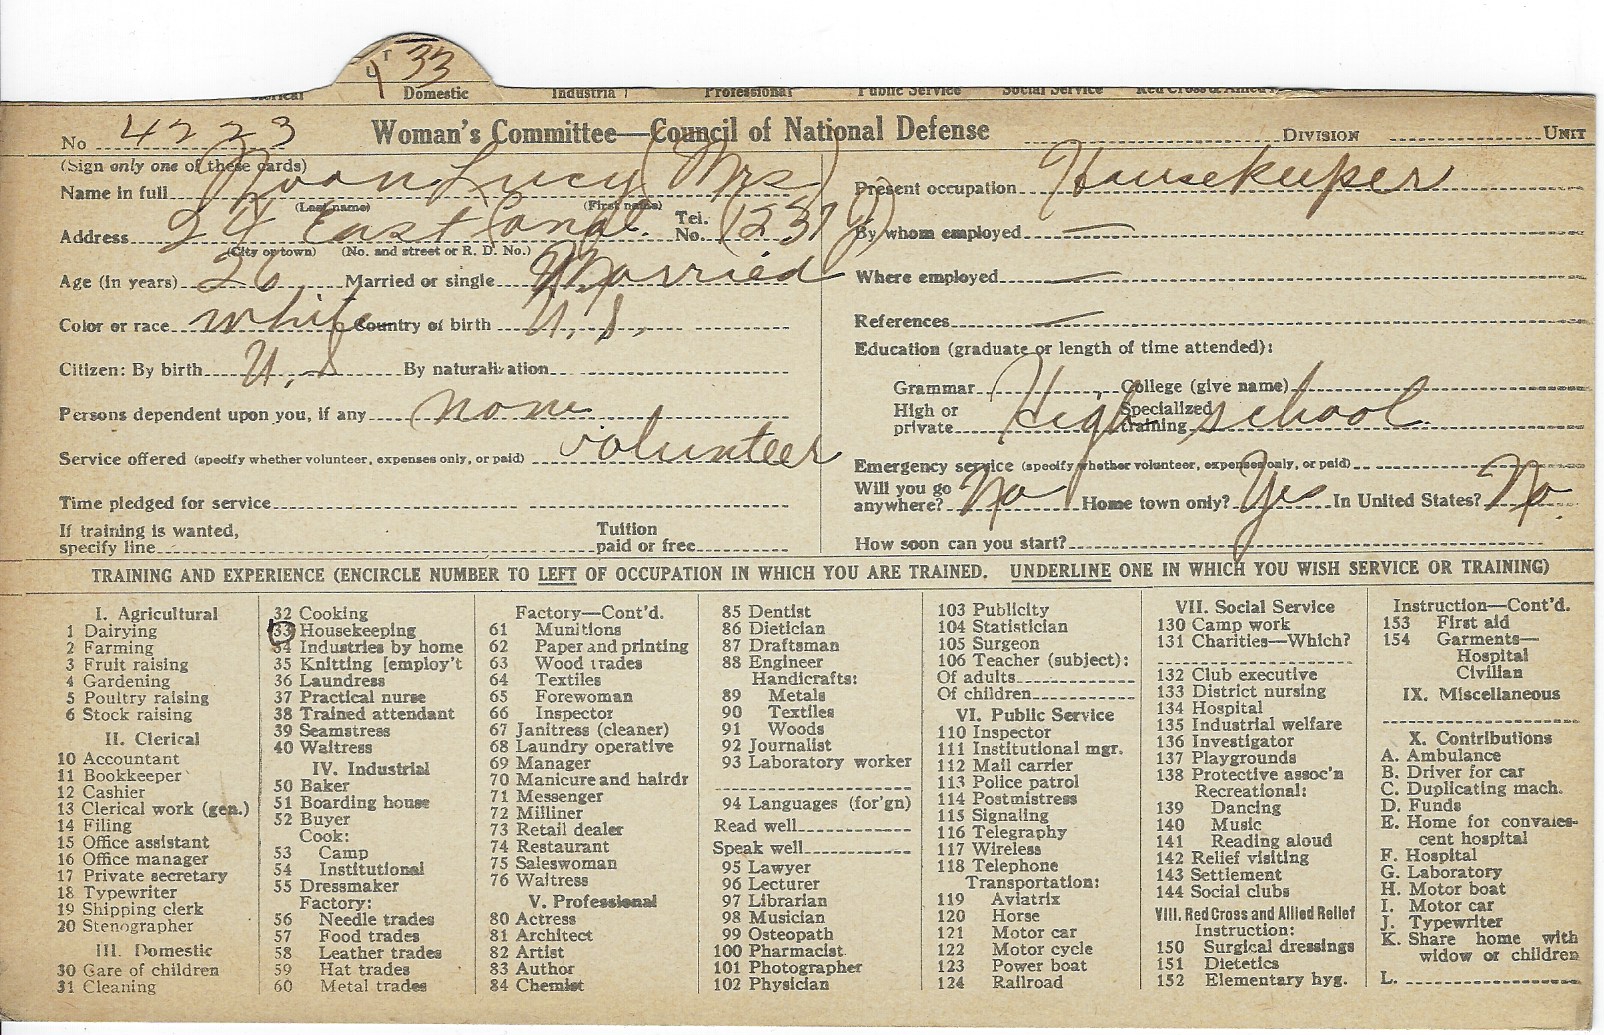 33
Domestic Industrial Professional Public Service Social Service Red Cross & Allied
No 4223 Woman's Committee—Council of National Defense DIVISION UNIT
(Sign only one of these cards)
Name in full Lucy (Mrs)
(Last name) (First name)
Address 24 East Canal. Tel. No. (1237 J)
(City or town) (No. and street or R. D. No.)
Age (in years) 26 Married or single Married
Color or race white Country of birth U.S.
Citizen: By birth U.S By naturalization
Persons dependent upon you, if any none
Service offered (specify whether volunteer, expenses only, or paid) volunteer
Time pledged for service
If training is wanted, specify line Tuition paid or free
Present occupation Housekeeper
By whom employed —
Where employed —
References —
Education (graduate or length of time attended):
Grammar College (give name)
High or private High school Specialized training
Emergency service (specify whether volunteer, expenses only, or paid)
Will you go anywhere? No Home town only? Yes In United States? No.
How soon can you start?
TRAINING AND EXPERIENCE (ENCIRCLE NUMBER TO LEFT OF OCCUPATION IN WHICH YOU ARE TRAINED. UNDERLINE ONE IN WHICH YOU WISH SERVICE OR TRAINING)
I. Agricultural
1 Dairying
2 Farming
3 Fruit raising
4 Gardening
5 Poultry raising
6 Stock raising
II. Clerical
10 Accountant
11 Bookkeeper
12 Cashier
13 Clerical work (gen.)
14 Filing
15 Office assistant
16 Office manager
17 Private secretary
18 Typewriter
19 Shipping clerk
20 Stenographer
III. Domestic
30 Care of children
31 Cleaning
32 Cooking
33 Housekeeping
34 Industries by home
35 Knitting [employ't
36 Laundress
37 Practical nurse
38 Trained attendant
39 Seamstress
40 Waitress
IV. Industrial
50 Baker
51 Boarding house
52 Buyer
Cook:
53 Camp
54 Institutional
55 Dressmaker
Factory:
56 Needle trades
57 Food trades
58 Leather trades
59 Hat trades
60 Metal trades
Factory—Cont'd.
61 Munitions
62 Paper and printing
63 Wood trades
64 Textiles
65 Forewoman
66 Inspector
67 Janitress (cleaner)
68 Laundry operative
69 Manager
70 Manicure and hairdr
71 Messenger
72 Milliner
73 Retail dealer
74 Restaurant
75 Saleswoman
76 Waitress
V. Professional
80 Actress
81 Architect
82 Artist
83 Author
84 Chemist
85 Dentist
86 Dietician
87 Draftsman
88 Engineer
Handicrafts:
89 Metals
90 Textiles
91 Woods
92 Journalist
93 Laboratory worker
94 Languages (for'gn)
Read well
Speak well
95 Lawyer
96 Lecturer
97 Librarian
98 Musician
99 Osteopath
100 Pharmacist
101 Photographer
102 Physician
103 Publicity
104 Statistician
105 Surgeon
106 Teacher (subject):
Of adults
Of children
VI. Public Service
110 Inspector
111 Institutional mgr.
112 Mail carrier
113 Police patrol
114 Postmistress
115 Signaling
116 Telegraphy
117 Wireless
118 Telephone
Transportation:
119 Aviatrix
120 Horse
121 Motor car
122 Motor cycle
123 Power boat
124 Railroad
VII. Social Service
130 Camp work
131 Charities—Which?
132 Club executive
133 District nursing
134 Hospital
135 Industrial welfare
136 Investigator
137 Playgrounds
138 Protective assoc'n
Recreational:
139 Dancing
140 Music
141 Reading aloud
142 Relief visiting
143 Settlement
144 Social clubs
VIII. Red Cross and Allied Relief
Instruction:
150 Surgical dressings
151 Dietetics
152 Elementary hyg.
Instruction—Cont'd.
153 First aid
154 Garments—
Hospital
Civilian
IX. Miscellaneous
X. Contributions
A. Ambulance
B. Driver for car
C. Duplicating mach.
D. Funds
E. Home for convales-
cent hospital
F. Hospital
G. Laboratory
H. Motor boat
I. Motor car
J. Typewriter
K. Share home with
widow or children
L.